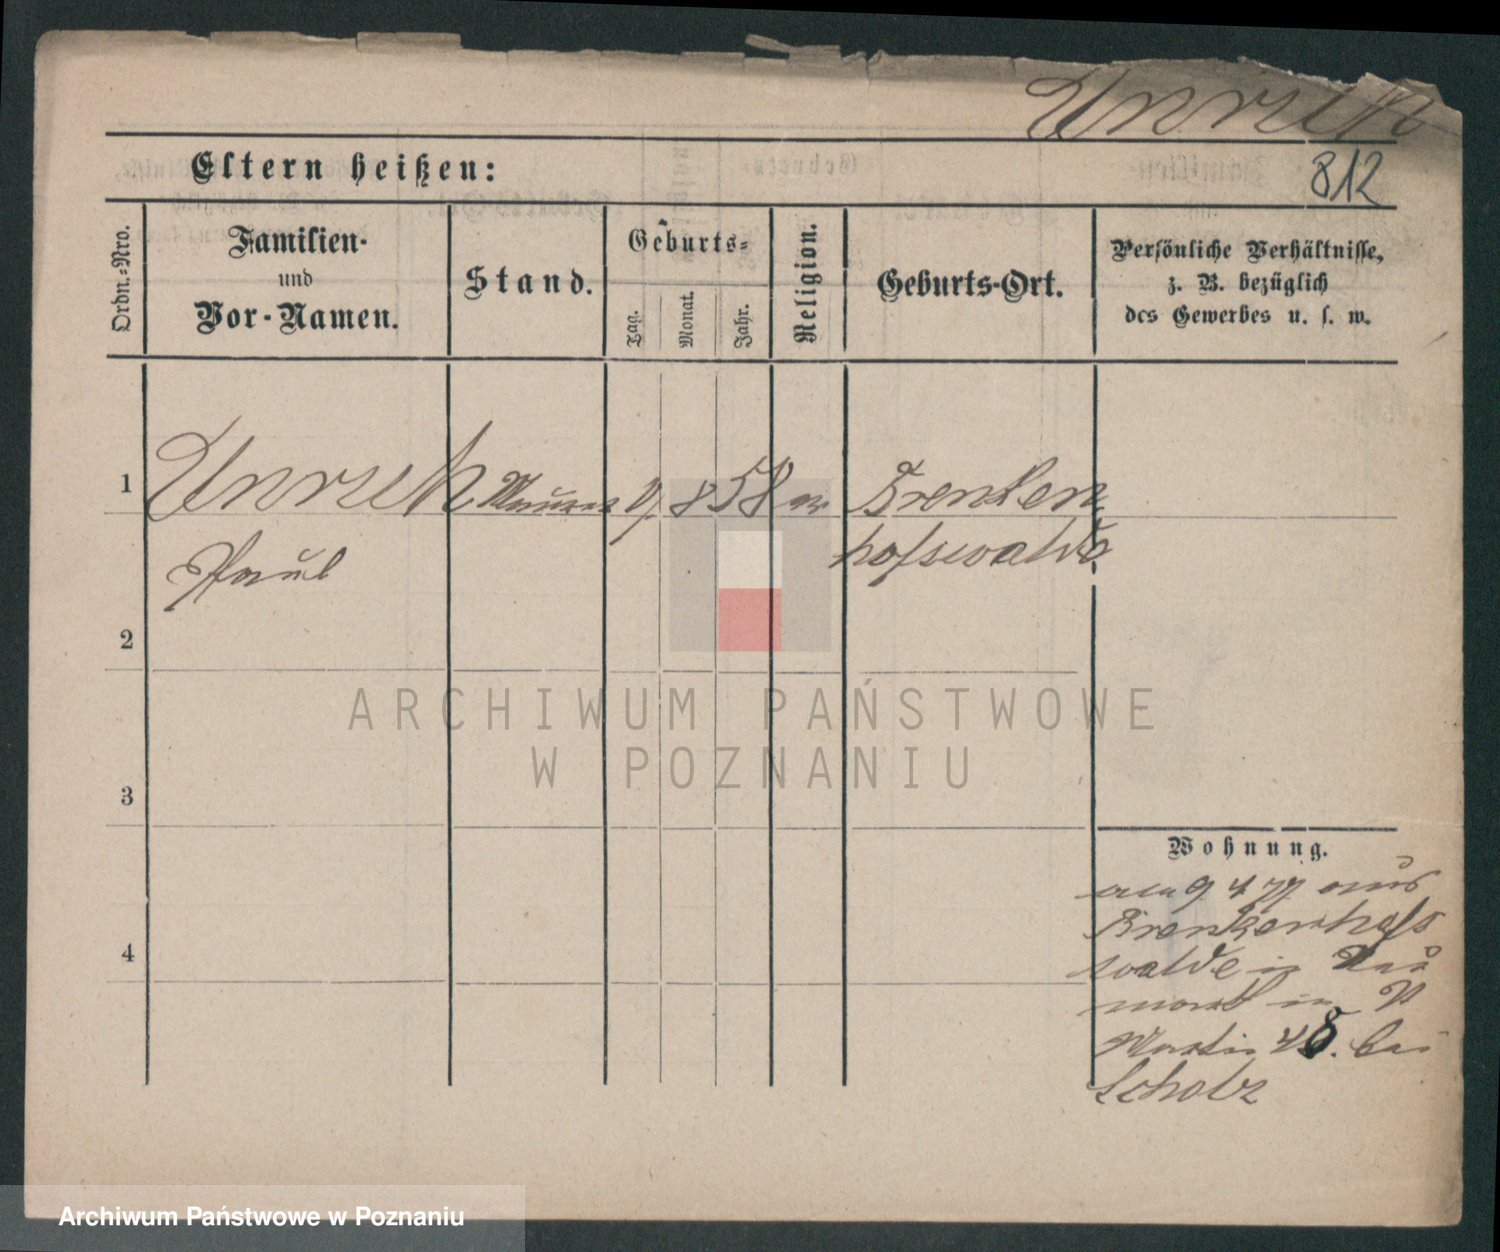 Unruh
812
Eltern heißen:
Ordn.-Nro.
Familien-
und
Vor-Namen.
Stand.
Geburts-
Tag.
Monat.
Jahr.
Religion.
Geburts-Ort.
Persönliche Verhältnisse,
z. B. bezüglich
des Gewerbes u. s. w.
1
Unruh
Maurer
8
58
Brenken
Paul
hofswalde
2
ARCHIWUM PAŃSTWOWE
W POZNANIU
3
Wohnung.
9 4 77 aus
Brenkenhofs
4
walde in
in
Martin 48. bei
Scholz
Archiwum Państwowe w Poznaniu